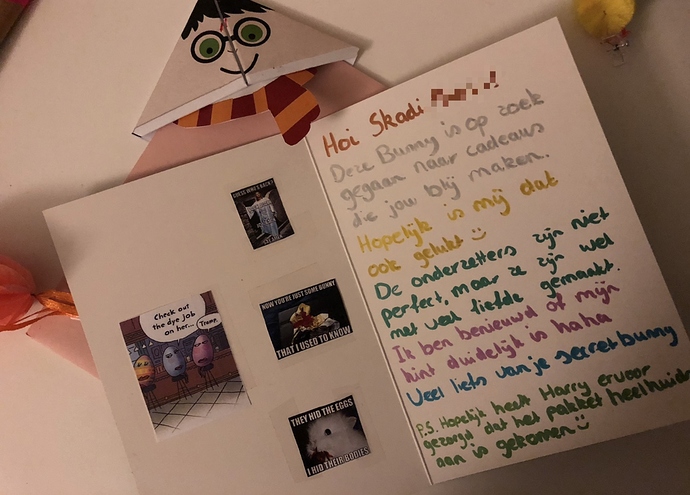 GUESS WHO'S BACK?
Check out
the dye job
on her...
Tramp.
NOW YOU'RE JUST SOME BUNNY
THAT I USED TO KNOW
THEY HID THE EGGS
I HID THEIR BODIES
Hoi Skadi
Deze Bunny is op zoek
gegaan naar cadeaus
die jou blij maken.
Hopelijk is mij dat
ook gelukt
De onderzetters zijn niet
perfect, maar ze zijn wel
met veel liefde gemaakt.
Ik ben benieuwd of mijn
hint duidelijk is haha
Veel liefs van je secret bunny
P.S. Hopelijk heeft Harry ervoor
gezorgd dat het pakket heelhuids
aan is gekomen